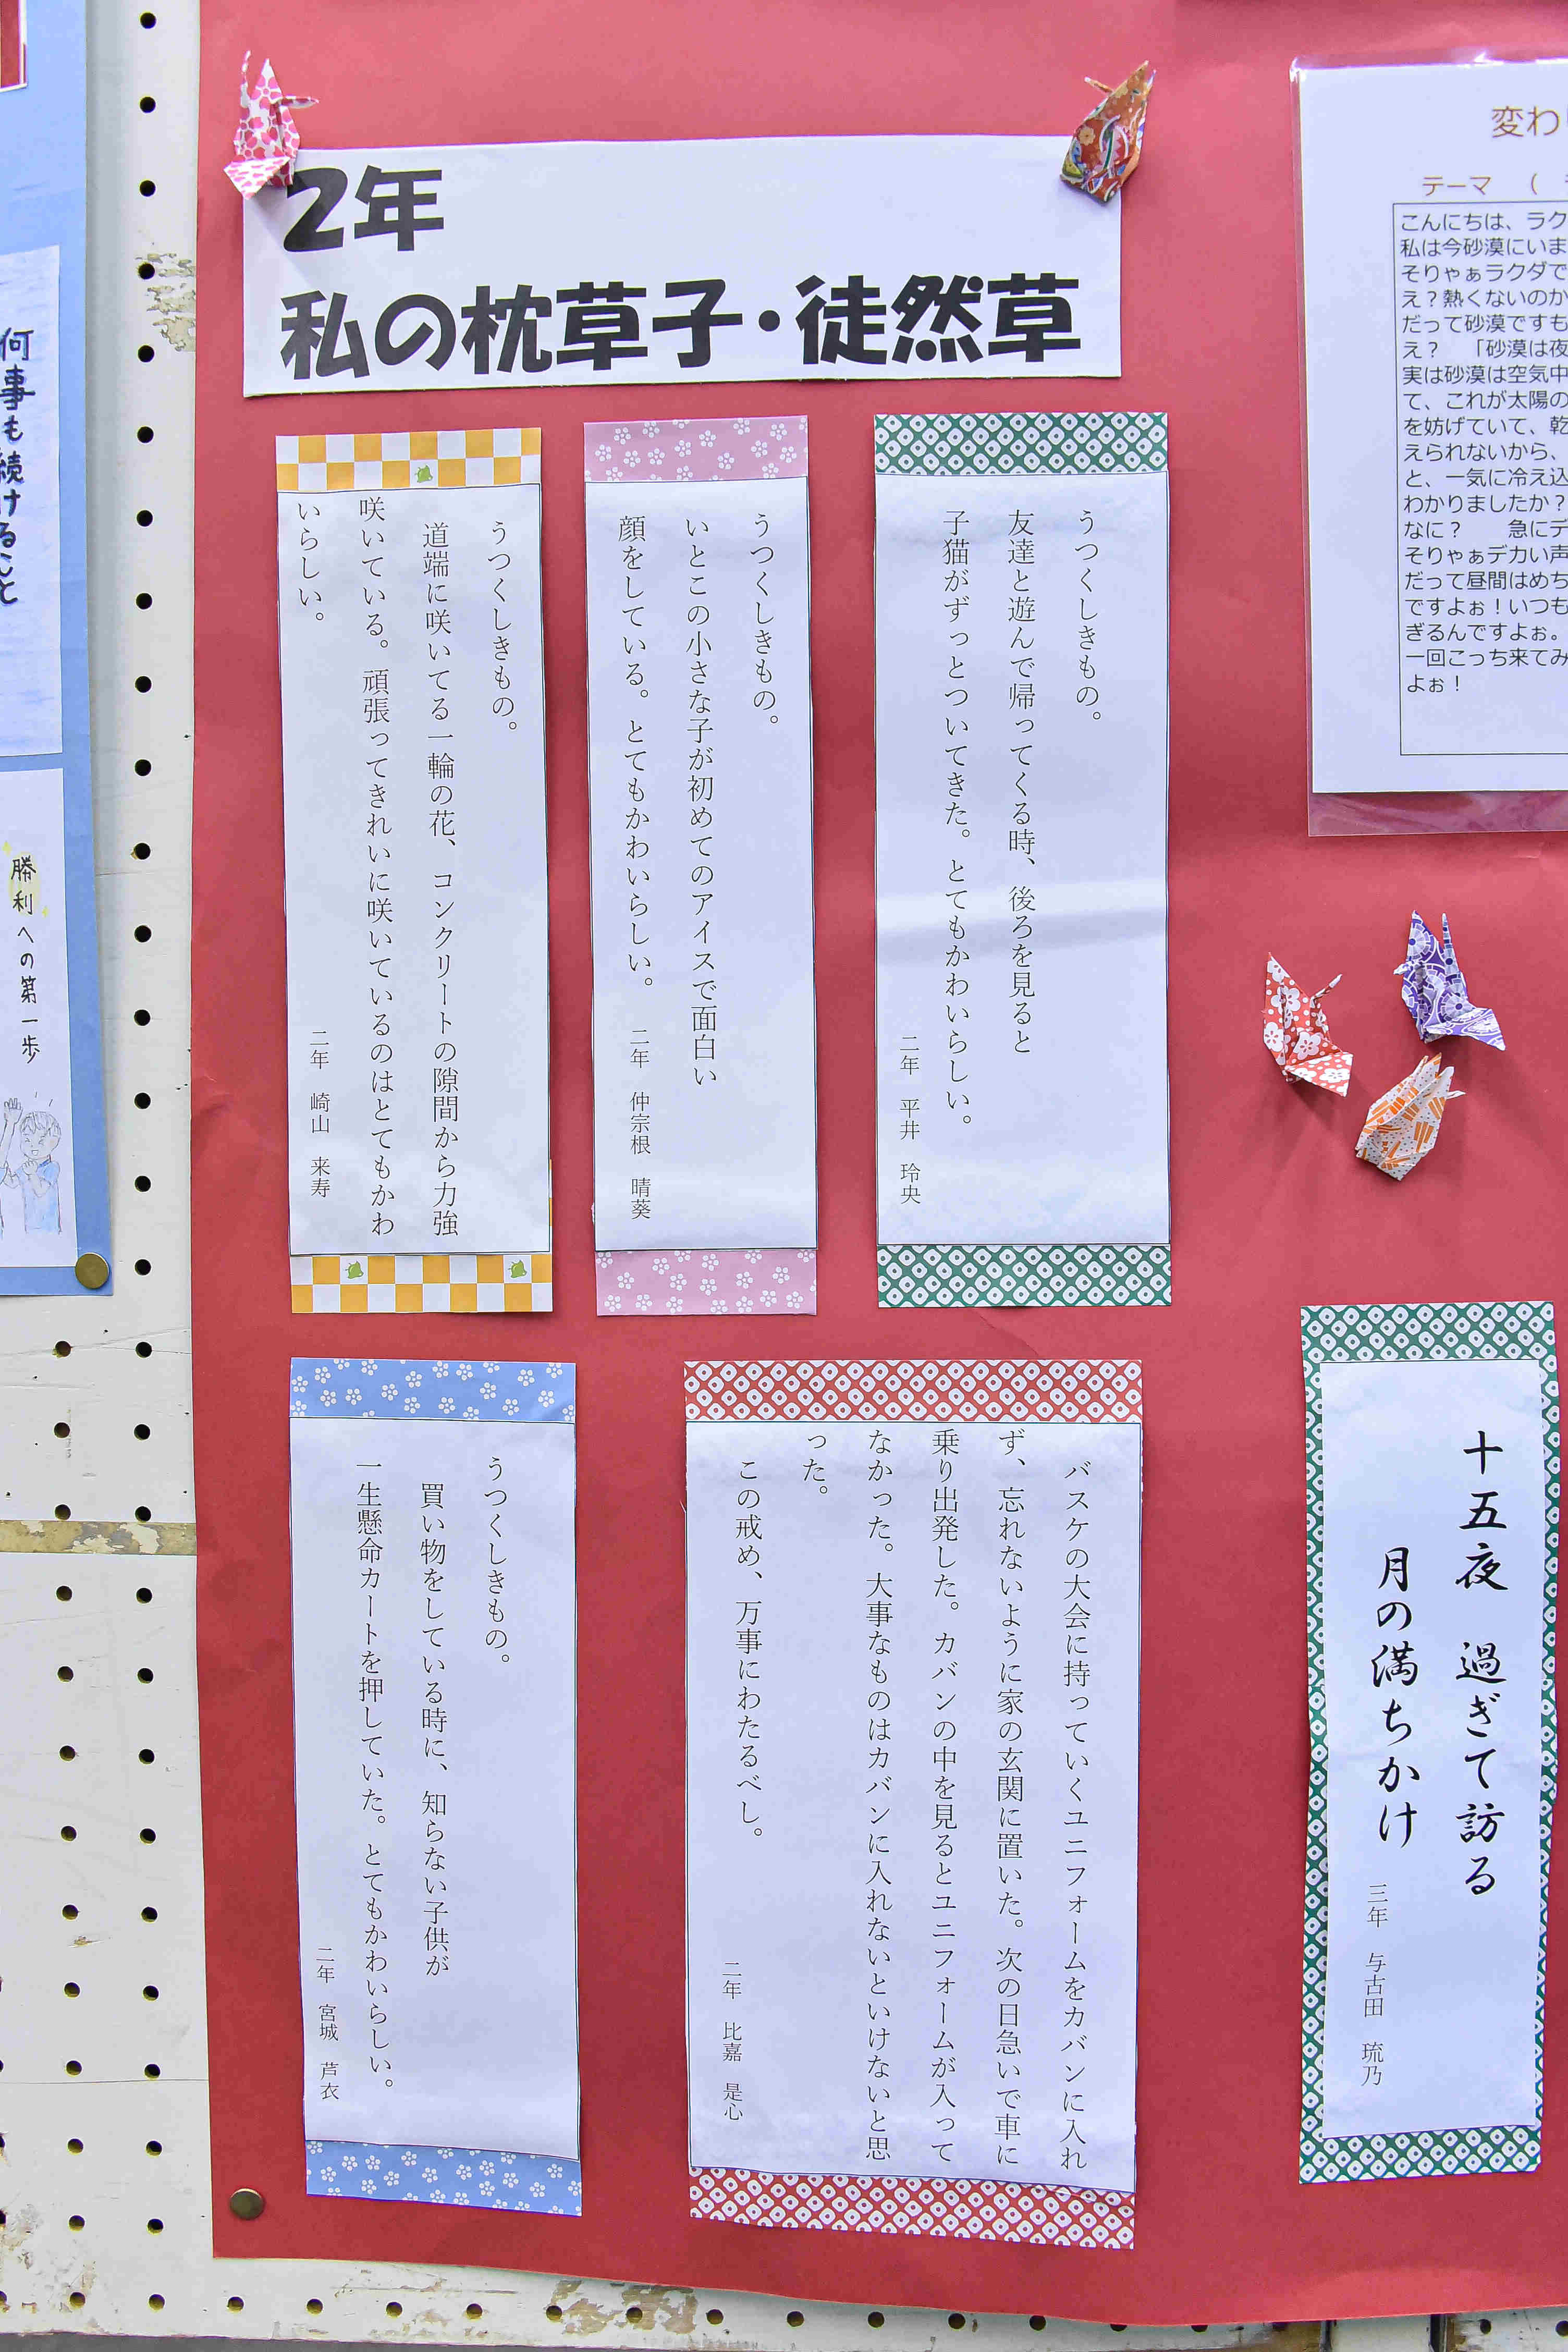 2年
私の枕草子・徒然草
うつくしきもの。
友達と遊んで帰ってくる時、後ろを見ると
子猫がずっとついてきた。とてもかわいらしい。
二年 平井 玲央
うつくしきもの。
いとこの小さな子が初めてのアイスで面白い
顔をしている。とてもかわいらしい。
二年 仲宗根 晴葵
うつくしきもの。
道端に咲いてる一輪の花、コンクリートの隙間から力強
咲いている。頑張ってきれいに咲いているのはとてもかわ
いらしい。
二年 崎山 来寿
バスケの大会に持っていくユニフォームをカバンに入れ
ず、忘れないように家の玄関に置いた。次の日急いで車に
乗り出発した。カバンの中を見るとユニフォームが入って
なかった。大事なものはカバンに入れないといけないと思
った。
この戒め、万事にわたるべし。
二年 比嘉 是心
うつくしきもの。
買い物をしている時に、知らない子供が
一生懸命カートを押していた。とてもかわいらしい。
二年 宮城 芦衣
変わ
テーマ （
こんにちは、ラク
私は今砂漠にいま
そりゃぁラクダで
え？熱くないのか
だって砂漠ですも
え？ 「砂漠は夜
実は砂漠は空気中
て、これが太陽の
を妨げていて、乾
えられないから、
と、一気に冷え込
わかりましたか？
なに？ 急にデ
そりゃぁデカい声
だって昼間はめち
ですよぉ！いつも
ぎるんですよぉ。
一回こっち来てみ
よぉ！
十五夜 過ぎて訪る
月の満ちかけ
三年 与古田 琉乃
何事も続けること
勝利への第一歩